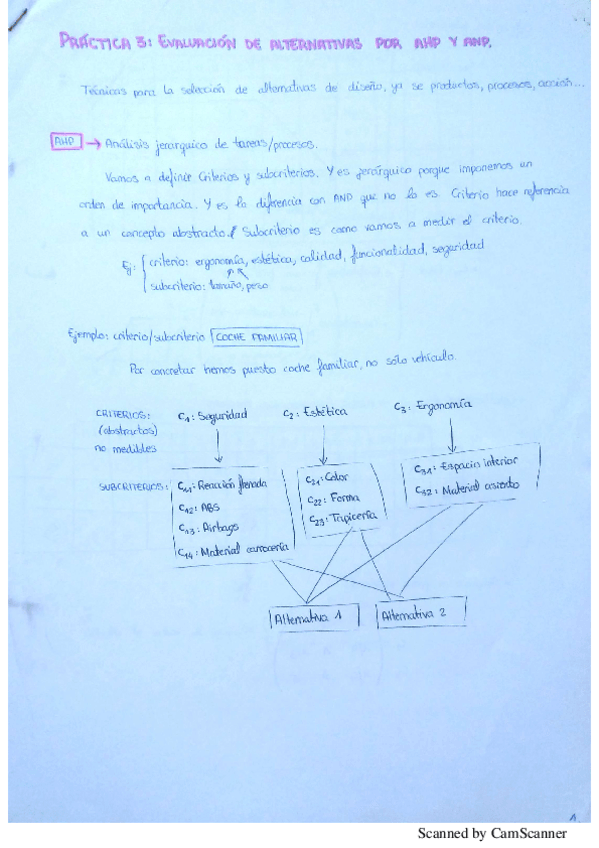 PRÁCTICA 3: EVALUACIÓN DE ALTERNATIVAS POR AHP Y ANP.
Técnicas para la selección de alternativas de diseño, ya se productos, procesos, acción...
AHP → Análisis jerarquico de tareas/procesos.
Vamos a definir Criterios y subcriterios. Y es jerárquico porque imponemos un
orden de importancia. Y es la diferencia con AND que no lo es. Criterio hace referencia
a un concepto abstracto. Subcriterio es como vamos a medir el criterio.
Ej: criterio: ergonomía, estética, calidad, funcionalidad, seguridad
subcriterio: tamaño, peso
Ejemplo: criterio/subcriterio COCHE FAMILIAR
Por concretar hemos puesto coche familiar, no sólo vehículo.
CRITERIOS: C1: Seguridad C2: Estética C3: Ergonomía
(abstractos)
no medibles
SUBCRITERIOS: C11: Reacción frenada C21: Color C31: Espacio interior
C12: ABS C22: Forma C32: Material asiento
C13: Airbags C23: Tapicería
C14: Material carrocería
Alternativa 1 Alternativa 2
1
Scanned by CamScanner